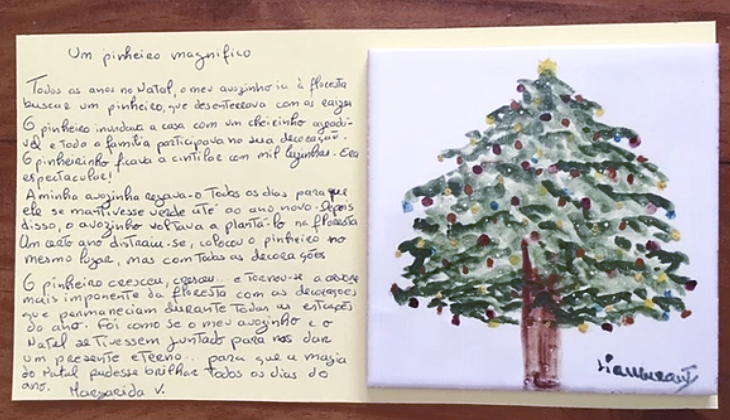 Um pinheiro magnifico
Todos os anos no Natal, o meu avozinho ia à floresta
buscar um pinheiro, que desenterrava com as raizes
O pinheiro inundava a casa com um cheirinho agradá-
vel e toda a família participava na sua decoração.
O pinheirinho ficava a cintilar com mil luzinhas. Era
espectacular!
A minha avozinha regava-o todos os dias para que
ele se mantivesse verde até ao ano novo. Depois
disso, o avozinho voltava a plantá-lo na floresta
Um certo ano distraiu-se, colocou o pinheiro no
mesmo lugar, mas com todas as decorações
O pinheiro cresceu, cresceu... e tornou-se a árvore
mais imponente da floresta com as decorações
que permaneciam durante todas as estações
do ano. Foi como se o meu avozinho e o
Natal se tivessem juntado para nos dar
um presente eterno... para que a magia
do Natal pudesse brilhar todos os dias do
ano. Margarida V.